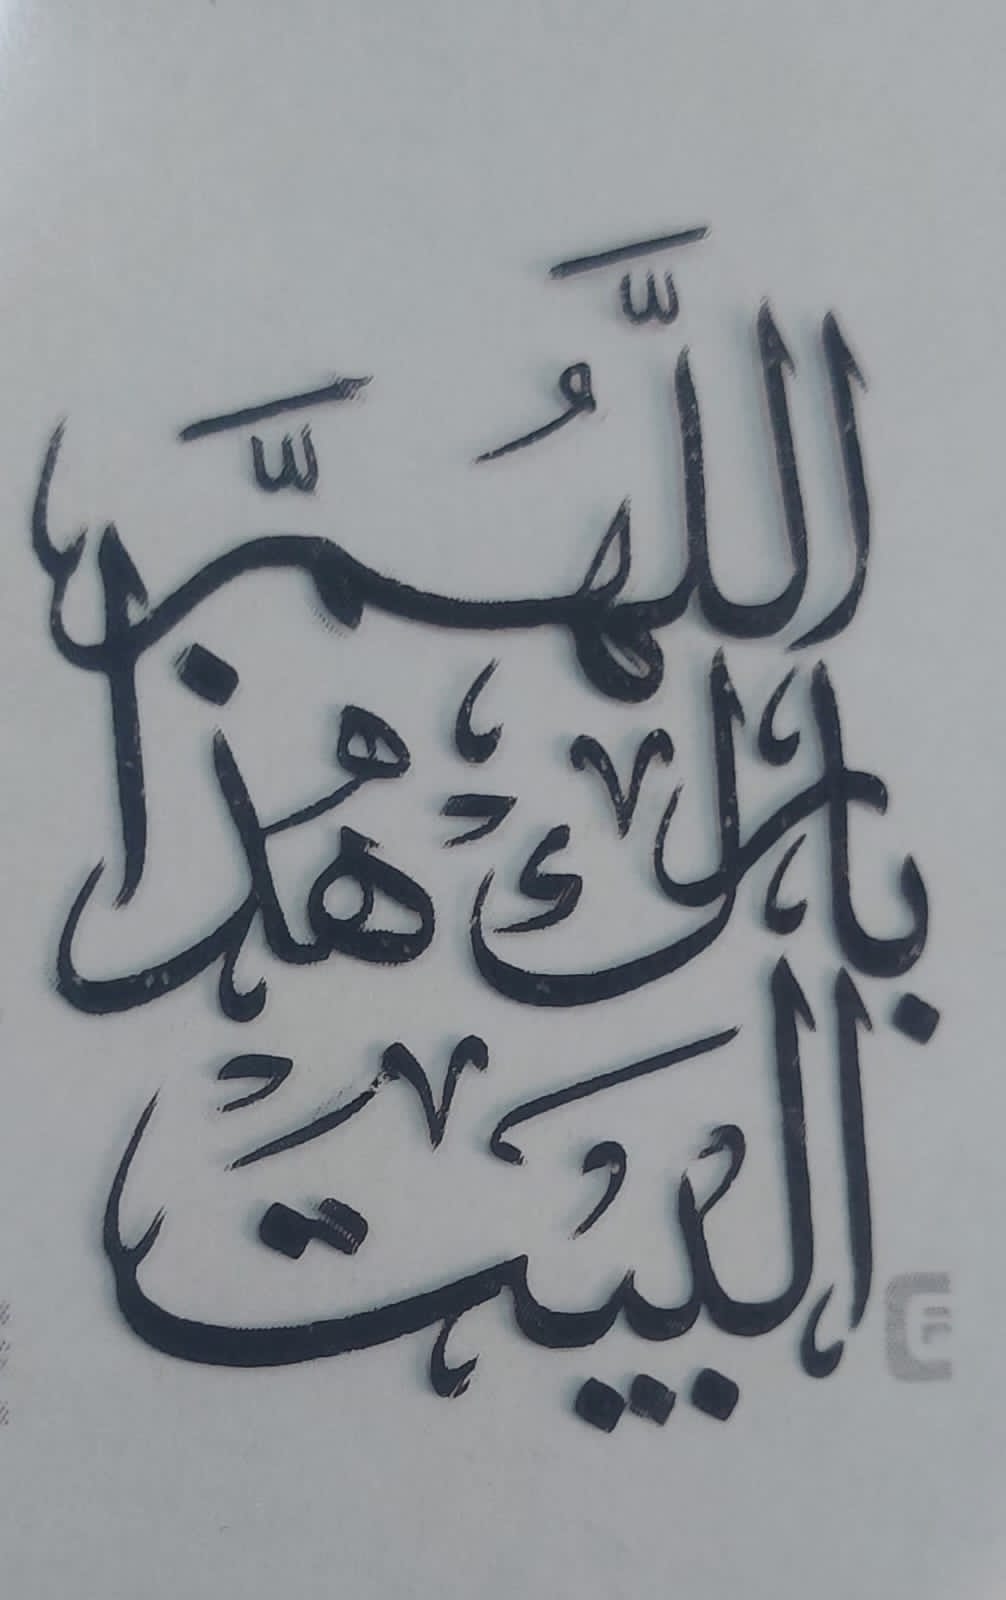 اللَّهُمَّ
بارك هٰذا
البيت